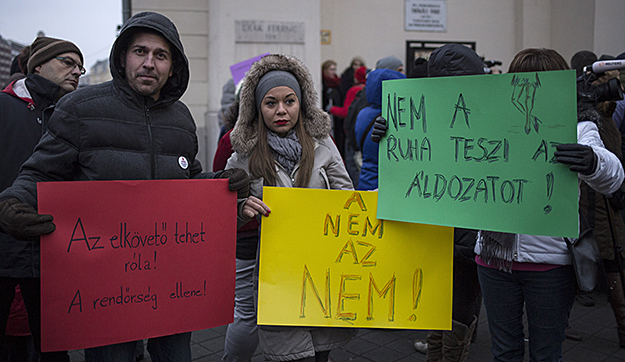 DEÁK FERENC
Az elkövető tehet
róla!
A rendőrség ellene!
A
NEM
AZ
NEM!
NEM A
RUHA TESZI AZ
ÁLDOZATOT!